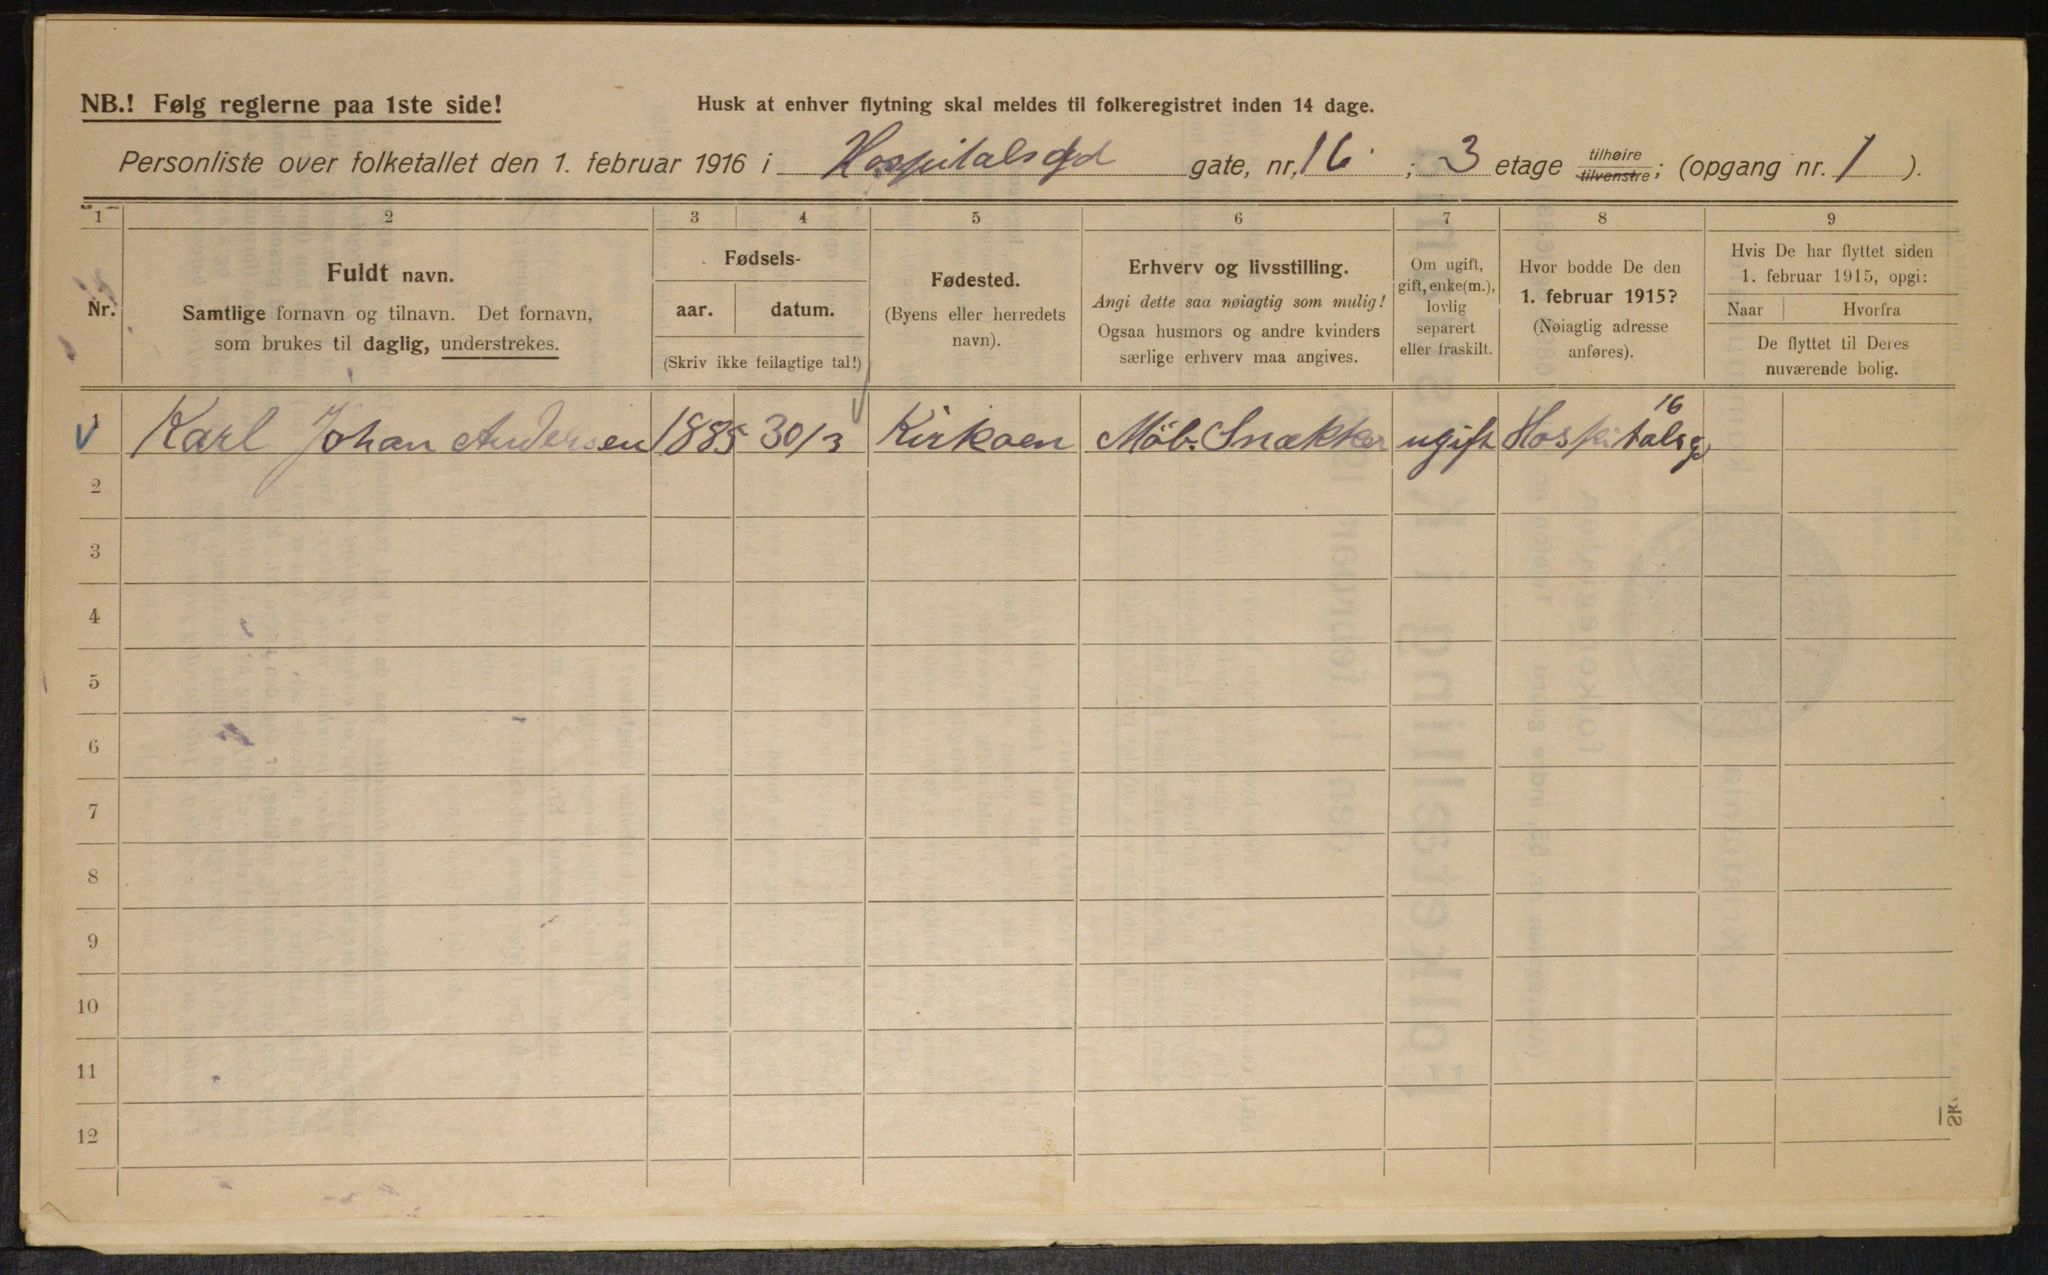 NB.! Følg reglerne paa 1ste side!
Husk at enhver flytning skal meldes til folkeregistret inden 14 dage.
Personliste over folketallet den 1. februar 1916 i Hospitalsgd gate, nr. 16 ; 3 etage tilhøire tilvenstre; (opgang nr. 1 ).
1 2 3 4 5 6 7 8 9
Nr.
Fuldt navn.
Samtlige fornavn og tilnavn. Det fornavn,
som brukes til daglig, understrekes.
Fødsels-
aar. datum.
(Skriv ikke feilagtige tal!)
Fødested.
(Byens eller herredets
navn).
Erhverv og livsstilling.
Angi dette saa nøiagtig som mulig!
Ogsaa husmors og andre kvinders
særlige erhverv maa angives.
Om ugift,
gift, enke(m.),
lovlig
separert
eller fraskilt.
Hvor bodde De den
1. februar 1915?
(Nøiagtig adresse
anføres).
Hvis De har flyttet siden
1. februar 1915, opgi:
Naar Hvorfra
De flyttet til Deres
nuværende bolig.
16
1 Karl Johan Andersen 1885 30/3 Kirkøen Møb. Snækker ugift Hospitalsg
2
3
4
5
6
7
8
9
10
11
12